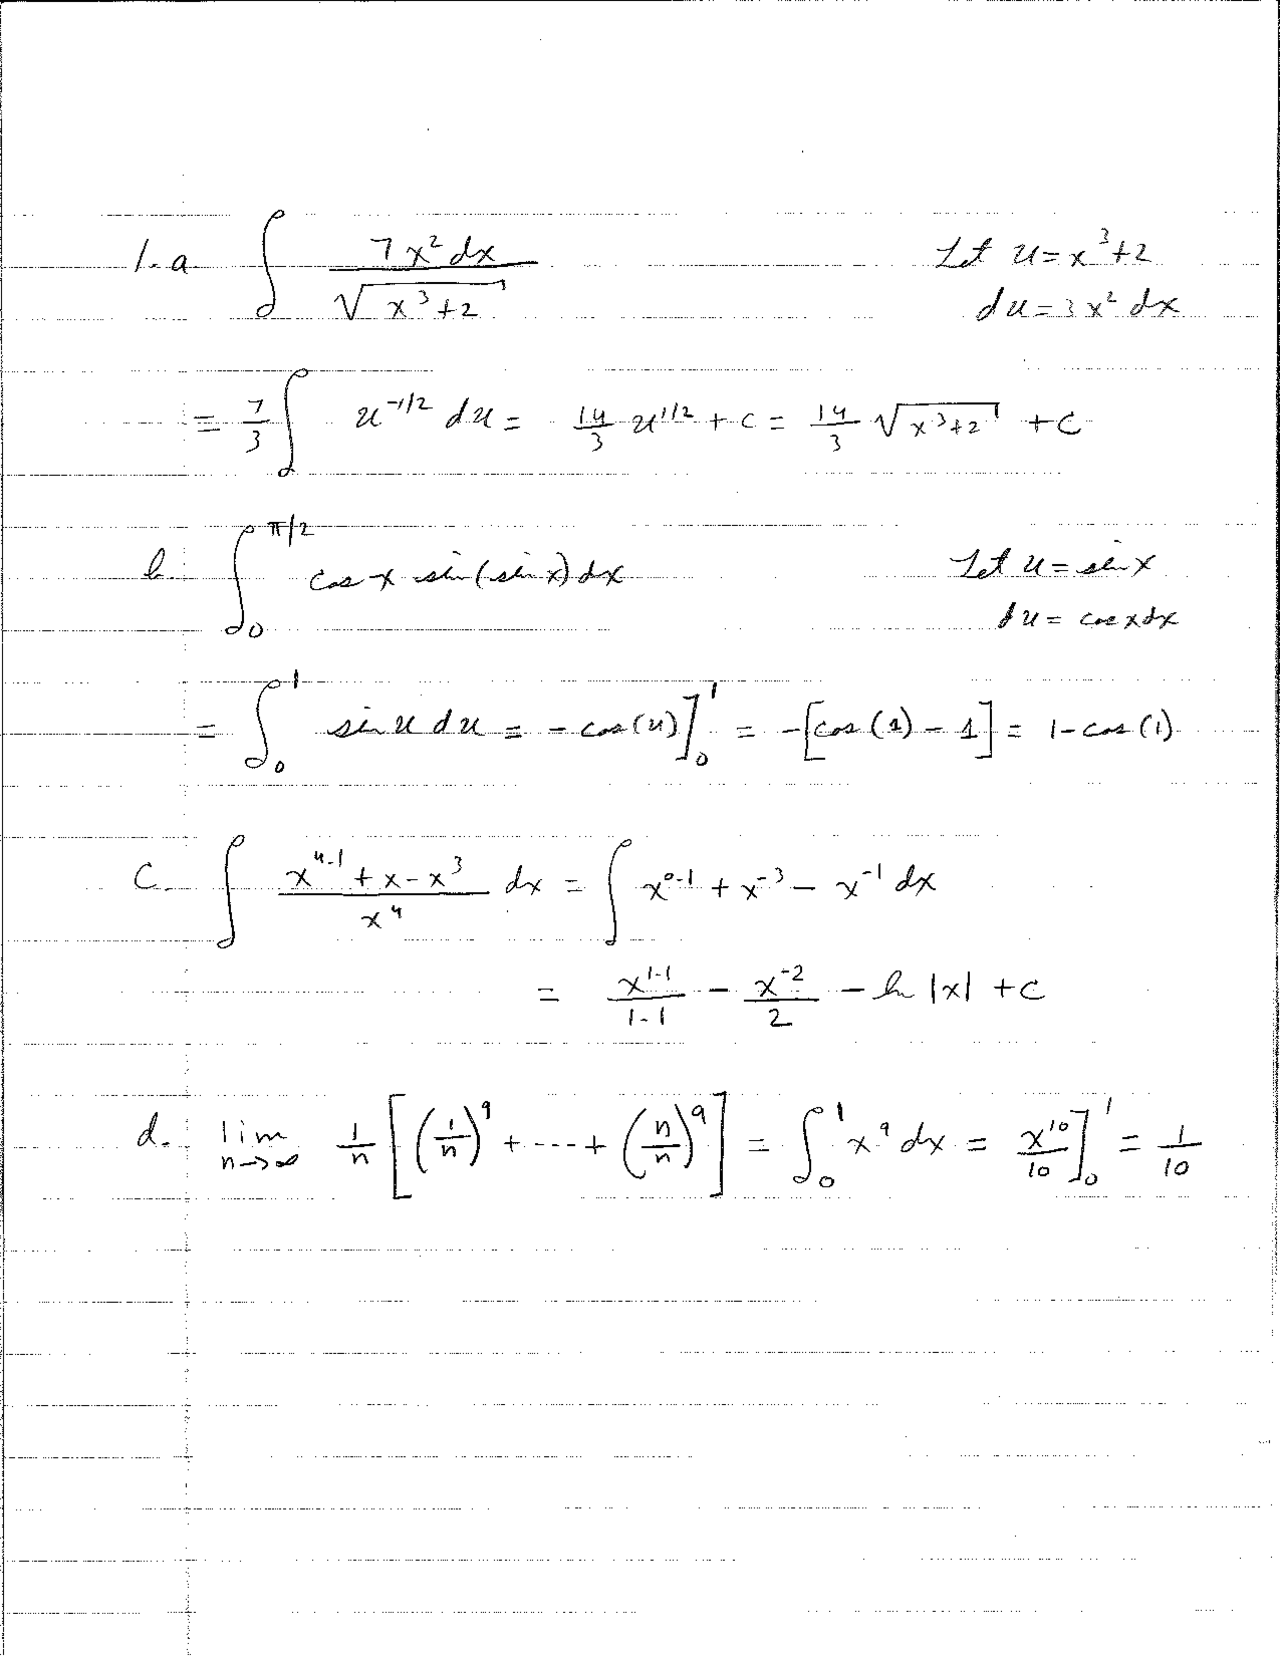 1. a. ∫ 7x² dx / √(x³+2)    Let u = x³+2
du = 3x² dx
= 7/3 ∫ u^(-1/2) du = 14/3 u^(1/2) + c = 14/3 √(x³+2) + c
b. ∫₀^(π/2) cos x sin(sin x) dx    Let u = sin x
du = cos x dx
= ∫₀¹ sin u du = -cos(u)]₀¹ = -[cos(1) - 1] = 1 - cos(1)
c. ∫ (x^(4.1) + x - x³)/x⁴ dx = ∫ x^(0.1) + x^(-3) - x^(-1) dx
= x^(1.1)/1.1 - x^(-2)/2 - ln |x| + c
d. lim n→∞ 1/n [(1/n)⁹ + ---- + (n/n)⁹] = ∫₀¹ x⁹ dx = x¹⁰/10]₀¹ = 1/10